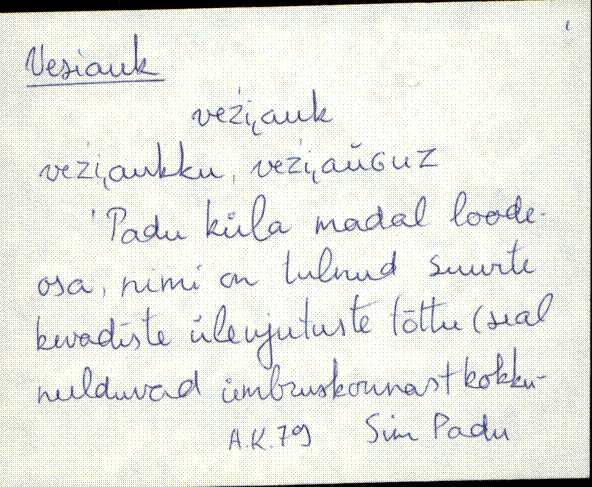 Vesiauk
veźi̮auk
veźi̮aukku, veźi̮aŭɢuᴢ
'Padu küla madal loode-
osa, nimi on tulnud suurte
kevadiste üleujutuste tõttu (seal
nulduvad ümbruskonnast kokku-
A.K. 79 Sim Padu